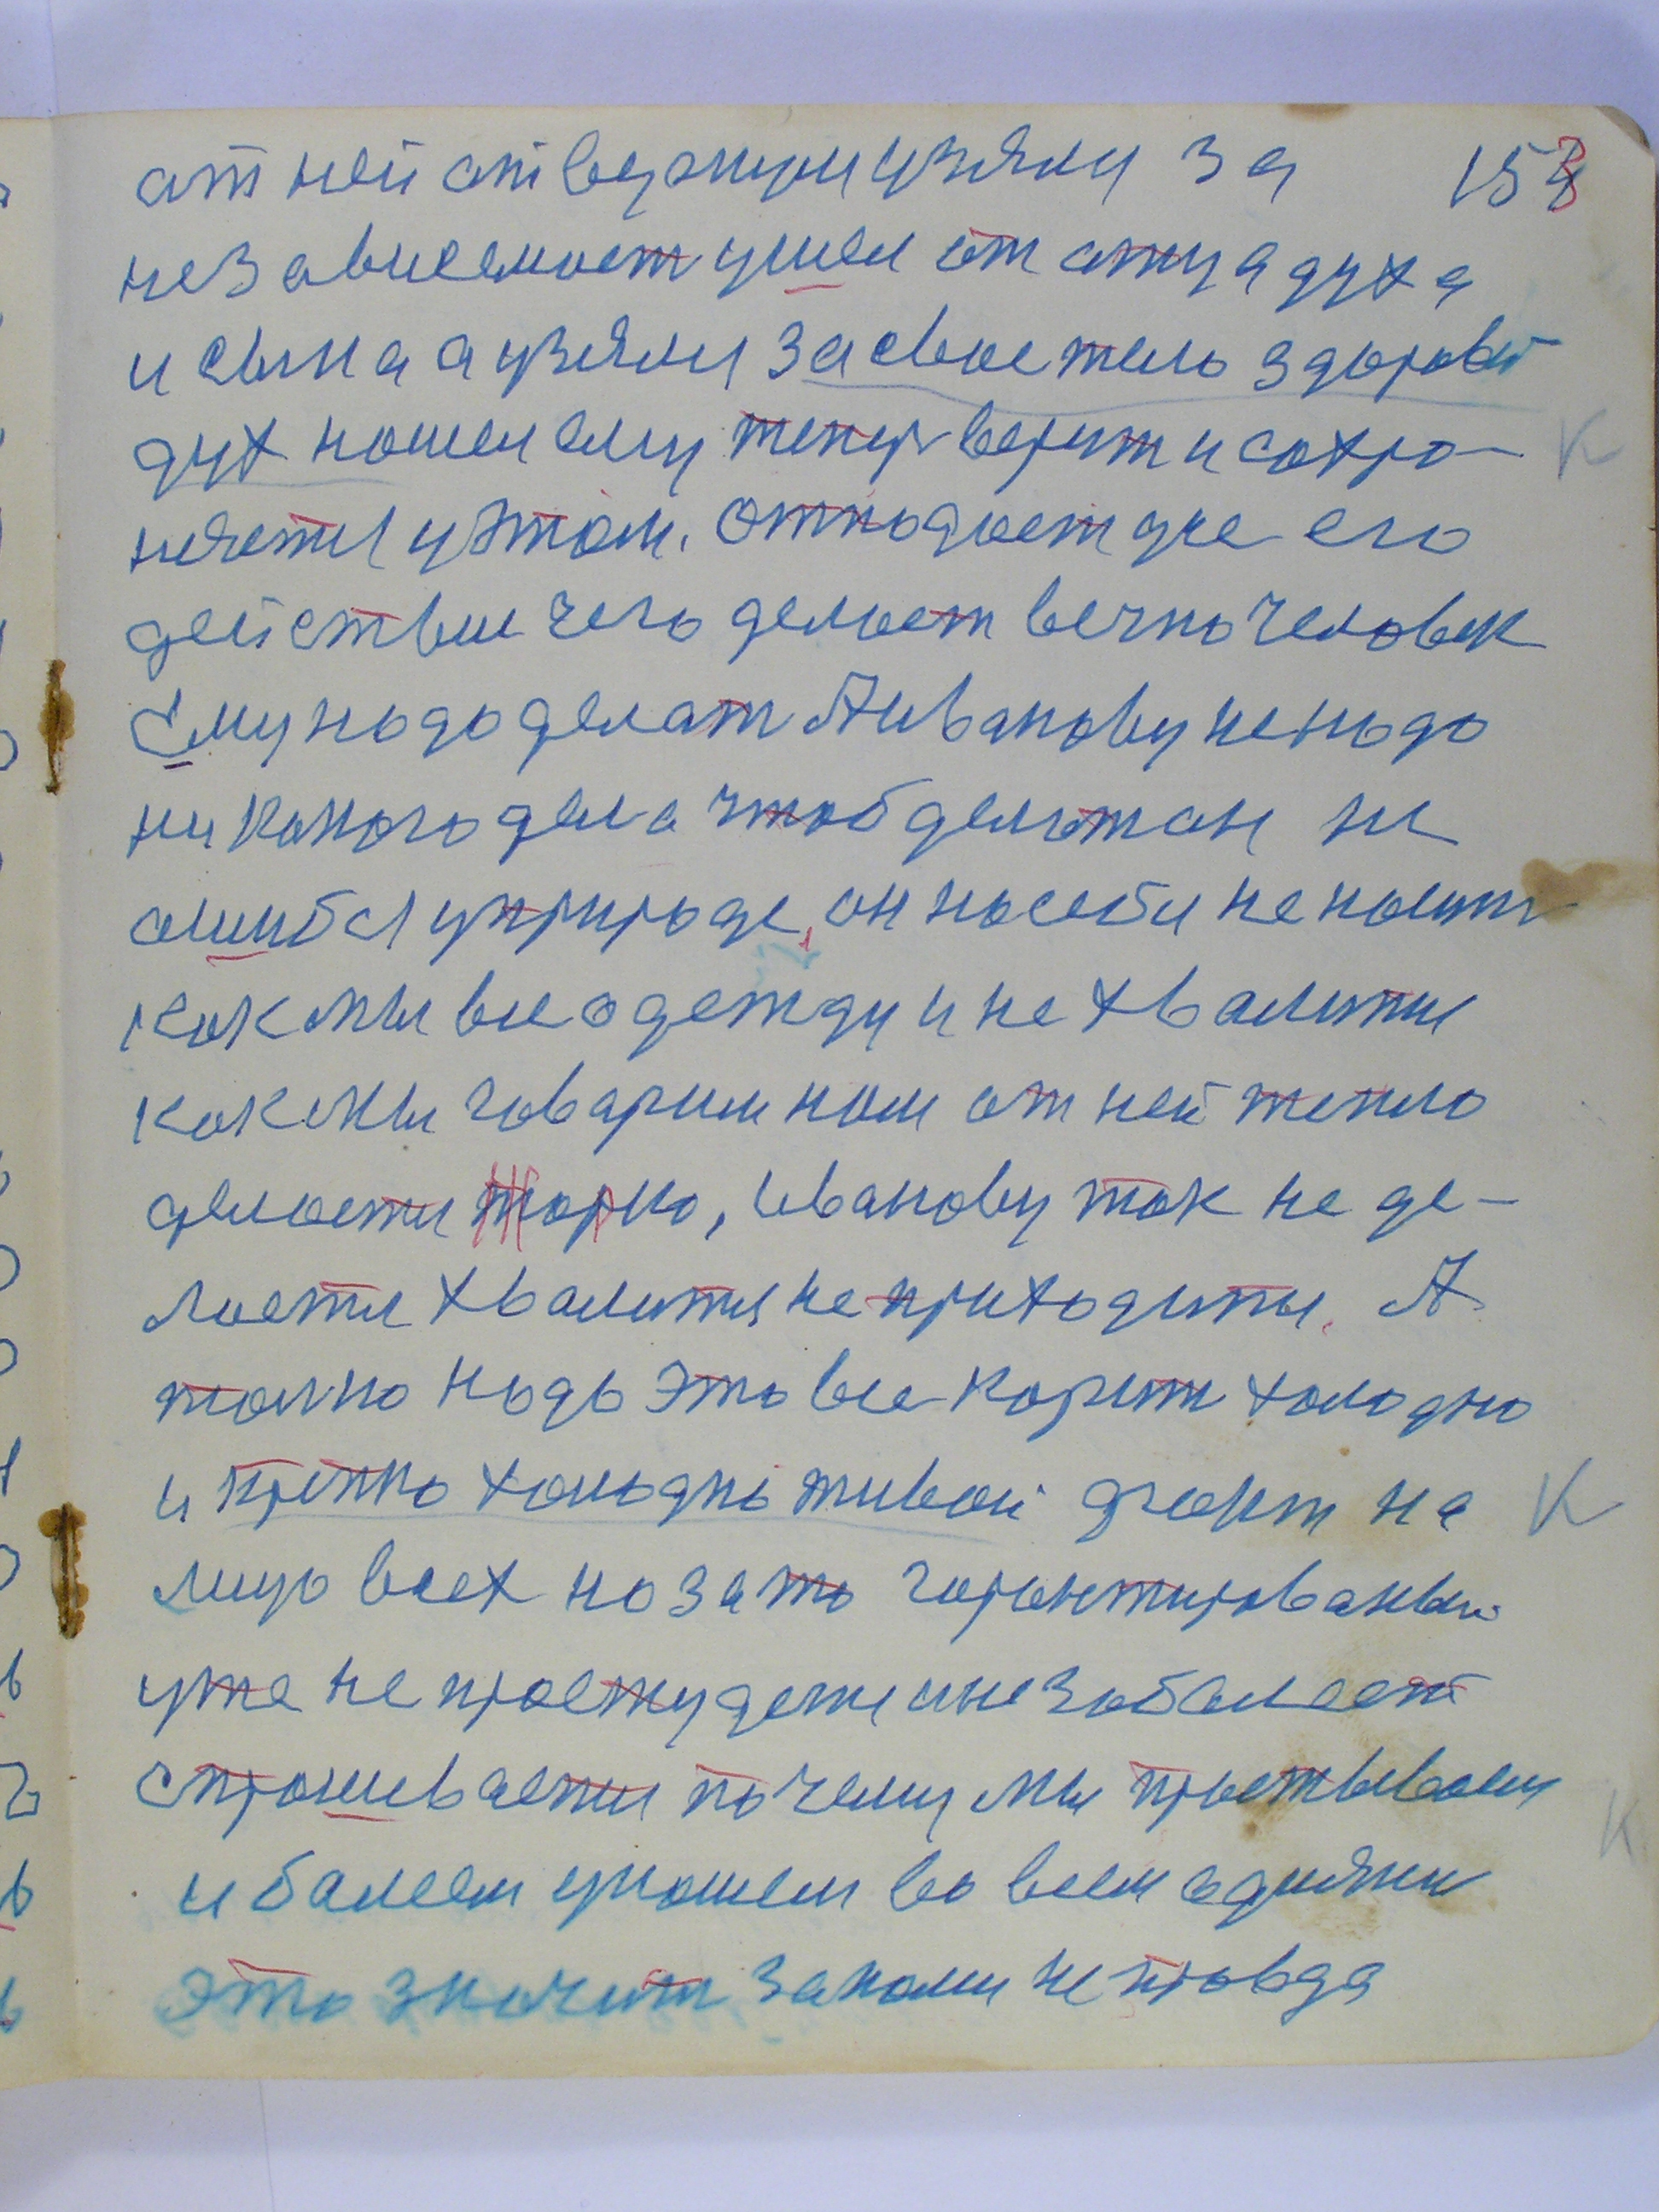 ат ней отвернули узяли за 153
независемост ушел от отца духа
и сына а узяли за свое тело здоровй
дух ношел ему тепер верит и сохро-
няетя у этом. Отпадает уже его
действие чего делает вечно человек
Ему надо делат А Иванову не надо
никокого дела чтоб делат он не
ошибся у природе, он на себя не носит
как мы все одежду и не хвалится
как мы говарим нам от ней тепло
делается жарко, Иванову так не де-
лается хвалится не приходится. А
толко надо это все корит холодно
и крепко холодно живой факт на
лицо всех но зато горантированый
уже не простудется и не заболеет
спрошивается почему мы простываем
и балеем у ношем во всем одияни
это значит за нами не правда